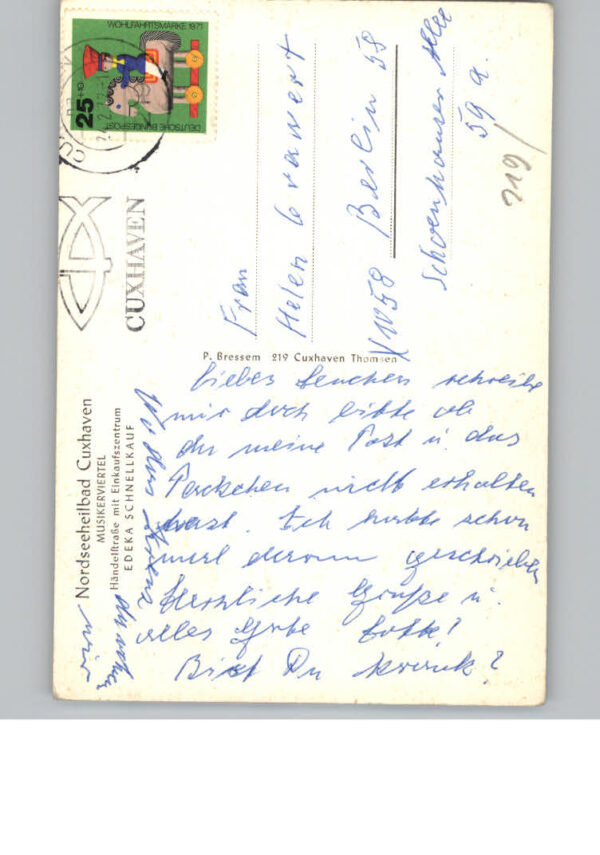 WOHLFAHRTSMARKE 1971
25+10
DEUTSCHE BUNDESPOST
CUXHAVEN
Nordseeheilbad Cuxhaven
MUSIKERVIERTEL
Händelstraße mit Einkaufszentrum
EDEKA SCHNELLKAUF
P. Bressem 219 Cuxhaven Thomsen
Frau
Helen
X 1058 Berlin 58
Schoenhauser Allee
59 a.
219/
schreibe
mir doch bitte ob
du meine Post u. das
Paeckchen nicht erhalten
hast. Ich hatte schon
mal darum geschrieben
Herzliche Grüße u.
alles Gute
Bist Du krank?
wir